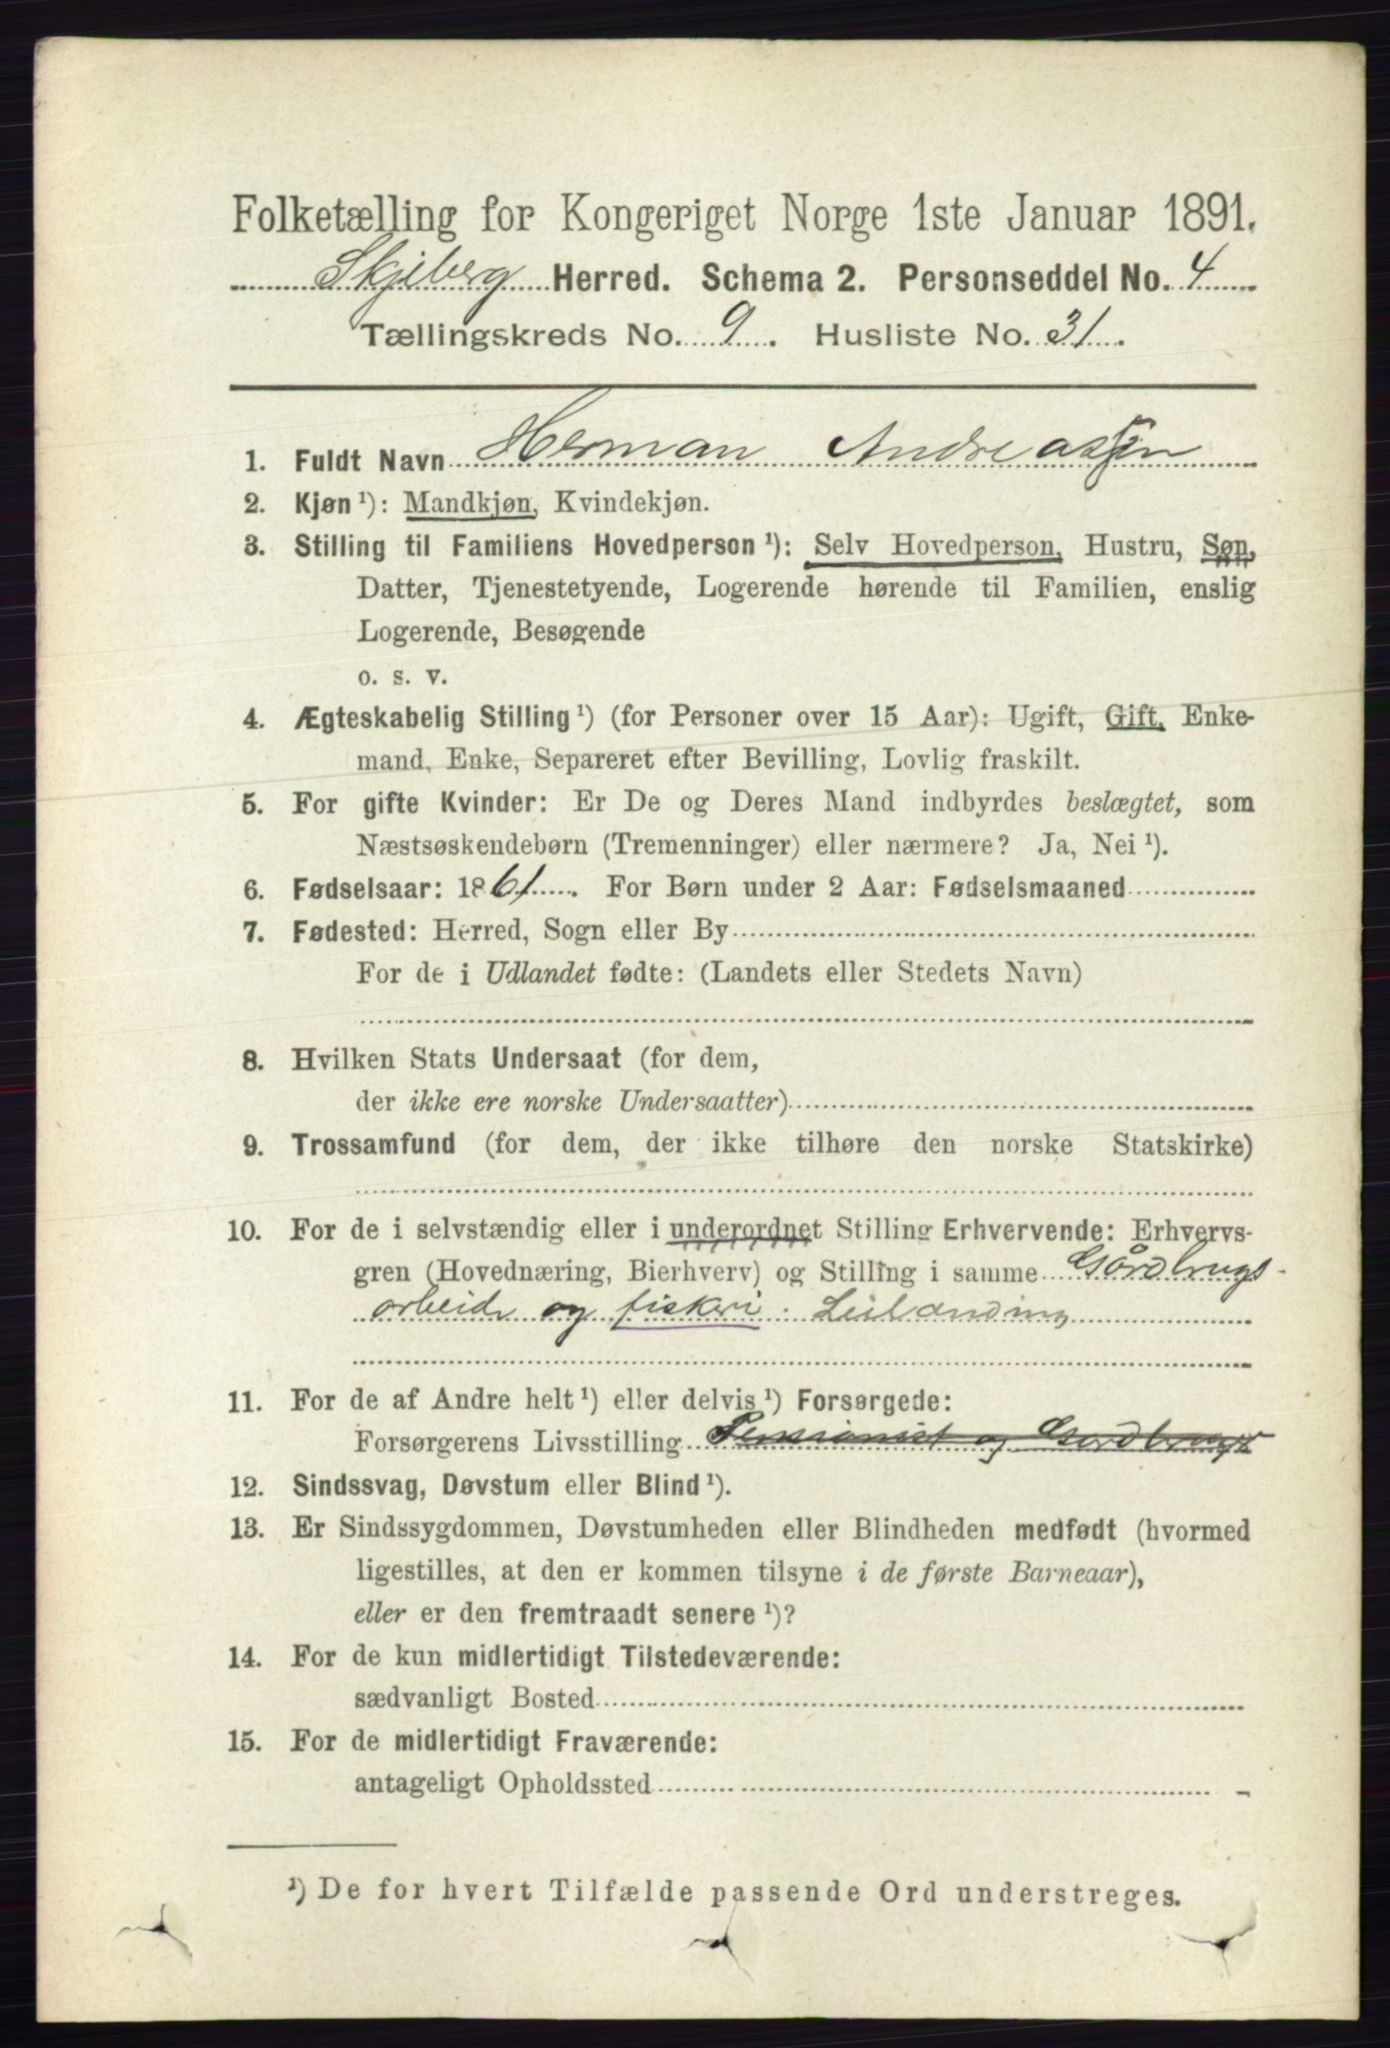 Folketælling for Kongeriget Norge 1ste Januar 1891.
Skjeberg Herred. Schema 2. Personseddel No. 4
Tællingskreds No. 9. Husliste No. 31.
1. Fuldt Navn Herman Andreassen
2. Kjøn ¹): Mandkjøn, Kvindekjøn.
3. Stilling til Familiens Hovedperson ¹): Selv Hovedperson, Hustru, Søn,
Datter, Tjenestetyende, Logerende hørende til Familien, enslig
Logerende, Besøgende
o. s. v.
4. Ægteskabelig Stilling ¹) (for Personer over 15 Aar): Ugift, Gift, Enke-
mand, Enke, Separeret efter Bevilling, Lovlig fraskilt.
5. For gifte Kvinder: Er De og Deres Mand indbyrdes beslægtet, som
Næstsøskendebørn (Tremenninger) eller nærmere? Ja, Nei ¹).
6. Fødselsaar: 1861. For Børn under 2 Aar: Fødselsmaaned
7. Fødested: Herred, Sogn eller By
For de i Udlandet fødte: (Landets eller Stedets Navn)
8. Hvilken Stats Undersaat (for dem,
der ikke ere norske Undersaatter)
9. Trossamfund (for dem, der ikke tilhøre den norske Statskirke)
10. For de i selvstændig eller i underordnet Stilling Erhvervende: Erhvervs-
gren (Hovednæring, Bierhverv) og Stilling i samme Gårdbrugs-
arbeide og fiskeri. Leilænding
11. For de af Andre helt ¹) eller delvis ¹) Forsørgede:
Forsørgerens Livsstilling Pensionist og Gårdbruger
12. Sindssvag, Døvstum eller Blind ¹).
13. Er Sindssygdommen, Døvstumheden eller Blindheden medfødt (hvormed
ligestilles, at den er kommen tilsyne i de første Barneaar),
eller er den fremtraadt senere ¹)?
14. For de kun midlertidigt Tilstedeværende:
sædvanligt Bosted
15. For de midlertidigt Fraværende:
antageligt Opholdssted
¹) De for hvert Tilfælde passende Ord understreges.